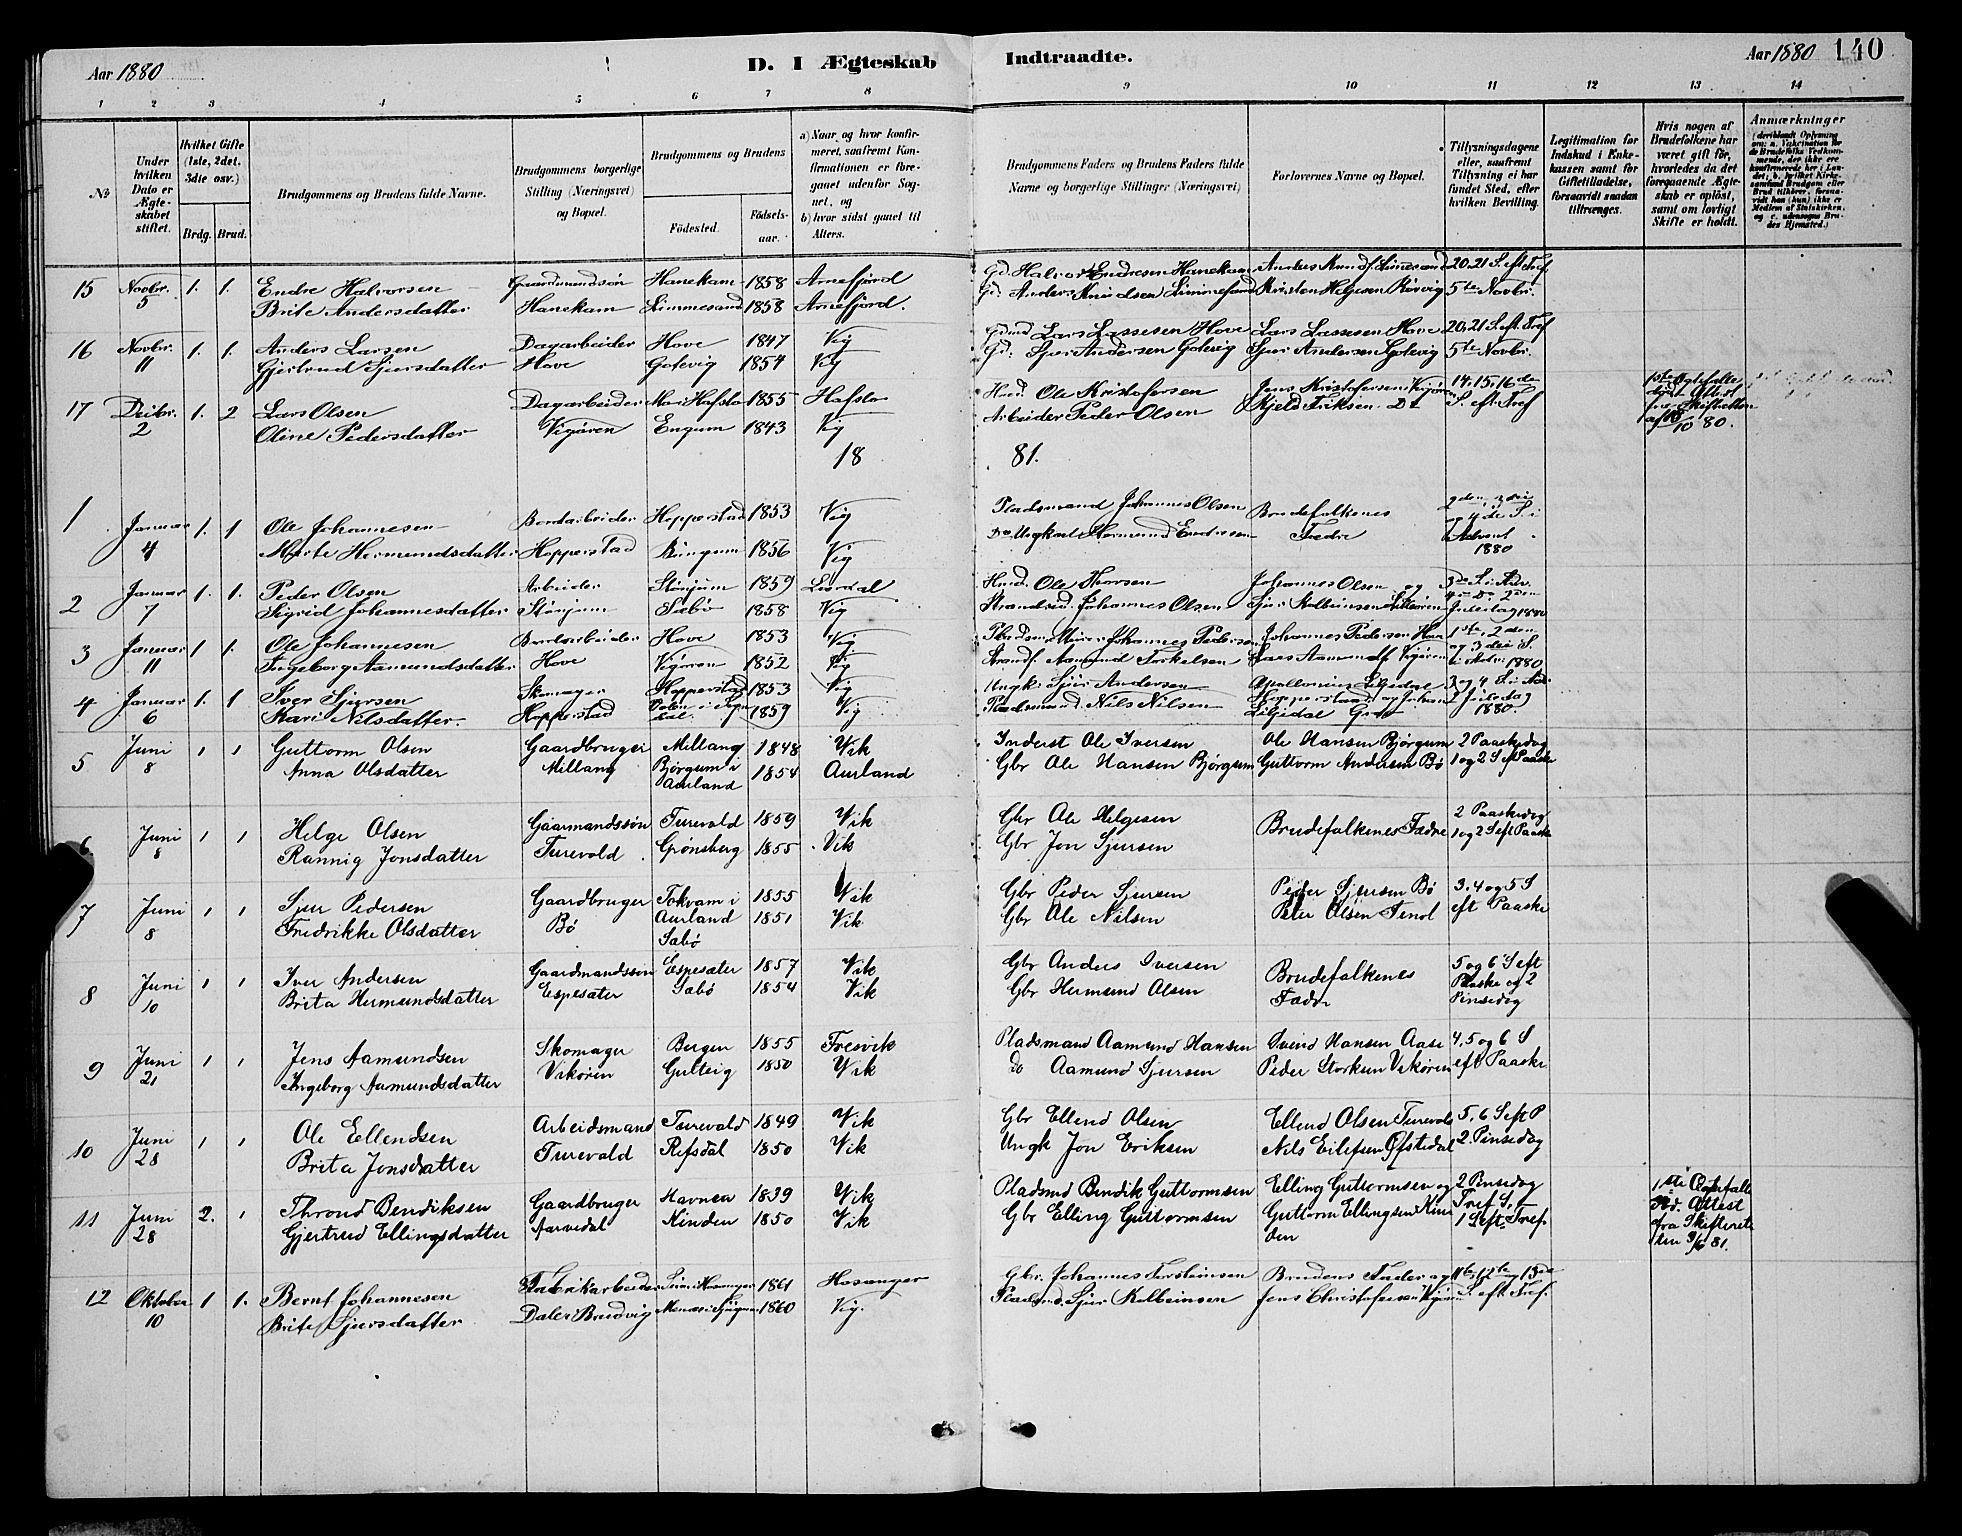 Aar 1880
D. I Ægteskab Indtraadte.
Aar 1880 140
1 2 3 4 5 6 7 8 9 10 11 12 13 14
No
Under hvilken Dato er Ægteskabet stiftet.
Hvilket Gifte (1ste, 2det, 3die osv.)
Brdg. Brud.
Brudgommens og Brudens fulde Navne.
Brudgommens borgerlige Stilling (Næringsvei) og Bopæl.
Brudgommens og Brudens
Fødested. Fødselsaar.
a) Naar og hvor konfirmeret, saafremt Konfirmationen er foregaaet udenfor Sognet, og
b) hvor sidst gaaet til Alters.
Brudgommens Faders og Brudens Faders fulde Navne og borgerlige Stillinger (Næringsvei)
Forlovernes Navne og Bopæl.
Tillysningsdagene eller, saafremt Tillysning ei har fundet Sted, efter hvilken Bevilling.
Legitimation for Indskud i Enkekassen samt for Giftetilladelse, forsaavidt saadan tiltrænges.
Hvis nogen af Brudefolkene har været gift før, hvorledes da det foregaaende Ægteskab er opløst, samt om lovligt Skifte er holdt.
Anmærkninger
15 Novbr. 5 1. 1. Endre Halvorsen Gaardmandssøn Hanekam 1858 Arnefjord Gd. Halvor Endresen Hanekam 20. 21 S. eft Tref
Brite Andersdatter Hanekam Linnesand 1858 Arnefjord. Gd. Anders Knudsen Kristen Helgesen Røvig 5te Novbr.
16 Novbr. 11 1. 1. Anders Larsen Dagarbeider Hove 1847 Vig Gdmd Lars Lassesen Hove Lars Lassesen Hove 20, 21 S. eft. Tref
Gjertrud Sjursdatter Hove Golevig 1854 Vig Gd: Sjur Andersen Golevig Sjur Andersen Golevig 5te Novbr.
17 Decbr. 2 1. 2 Lars Olsen Dagarbeider Hafslo 1855 Hafslo Husd. Ole Kristofersen Jens Kristofersen Vigøren 14. 15. 16de
Oline Pedersdatter Vigøren Engum 1843 Vig Arbeider Peder Olsen Kjeld Eriksen Do S. eft. Tref
10 80.
18 81.
1 Januar 4 1. 1 Ole Johannesen Bordarbeider Hopperstad 1853 Vig Pladsmand Johannes Olsen Brudefolkenes 2den, 3die og 4de S. i
Marte Hermundsdatter Hopperstad Rüngum 1856 Vig Do Ungkarl Hermund Endresen Fædre Advent 1880
2 Januar 7 1. 1. Peder Olsen Arbeider Stønjum 1859 Lærdal Husd. Ole Thorsen Johannes Olsen og
Sigrid Johannesdatter Stønjum Sæbø 1858 Vig Strandsid. Johannes Olsen Juledag 1880
3 Januar 11 1 1. Ole Johannesen Bordarbeider Hove 1853 Vig Johannes Pedersen Johannes Pedersen Hove 1ste, 2den og 3die S.
Ingeborg Aamundsdatter Hove Vigøren 1852 Vig Strandf. Aamund Torkelsen Vigøren 1880
4 Januar 6 1. 1 Iver Sjursen Skomager Hopperstad 1853 Vig Ungk. Sjur Andersen 3 og 4 S. i
Kari Nilsdatter. Hopperstad 1859 Vig Pladsmand Nils Nilsen Juledag 1880.
5 Juni 8 1 1 Guttorm Olsen Gaardbruger Millang 1848 Vik Inderst Ole Iversen Ole Hansen Bjørgum 2 Paaskedag
Anna Olsdatter Millang Bjørgum i Aurland 1854 Aurland Gbr Ole Hansen Bjørgum Guttorm Andersen Bø 1 og 2 S eft Paaske
6 Juni 8 1 1 Helge Olsen Gaarmandssøn Turevold 1859 Vik Gbr Ole Helgesen Brudefalkenes Fædre 2 Paaskedag
Rannig Jonsdatter Turevold Grønsberg 1855 Vik Gbr Jon Sjursen 1 og 2 S eft Paaske
7 Juni 8 1 1 Sjur Pedersen Gaardbruger Tokvam i Aurland 1855 Vik Gbr Peder Sjursen Peder Sjursen Bø 3. 4 og 5 S
Fredrikke Olsdatter Bø Sabø 1851 Vik Gbr Ole Nilsen Peter Olsen Tenol eft Paaske
8 Juni 10 1 1 Iver Andersen Gaardmandssøn Espesæter 1857 Vik Gbr Anders Iversen Brudefalkenes 5 og 6 S eft
Brita Hermundsdatter Espesæter Sabø 1854 Vik Gbr Hermund Olsen Fædre Paaske og 2 Pinsedag
9 Juni 21 1 1 Jens Aamundsen Skomager Bergen 1855 Fresvik Pladsmand Aamund Hansen Svend Hansen Aase 4, 5 og 6 S
Ingeborg Aamundsdatter Vikøren Gulteig 1850 Vik do Aamund Sjursen Peder Storksen Vikøren eft Paaske
10 Juni 28 1 1 Ole Ellendsen Arbeidsmand Turevold 1849 Vik Gbr Ellend Olsen Ellend Olsen Turevold 5, 6 S eft P
Brita Jonsdatter Turevold Refsdal 1850 Vik Ungk Jon Eriksen Nils Eilefsen Øfstedal 2. Pinsedag
11 Juni 28 2. 1 Thrond Bendiksen Gaardbruger Havnen 1839 Vik Pladsmd Bendik Guttormsen Elling Guttormsen og 2 Pinsedag 1ste
Gjertrud Ellingsdatter Aarvedal Ninden 1850 Vik Gbr Elling Guttormsen Guttorm Ellingsen Tref S. 1 S eft. Tref. Attest fra Skifteret den 9/6 81.
12 Oktober 10 1 1. Bernt Johannesen Fabrikarbeider 1861 Hosanger Gbr. Johannes Torsteinsen Brudens Fader og 11te, 12te og 13de
Brite Sjursdatter Dale i Bruvig 1860 Vig. Pladsmd. Sjur Kolbeinsen Jens Christofersen Vigøren S. eft Tref.